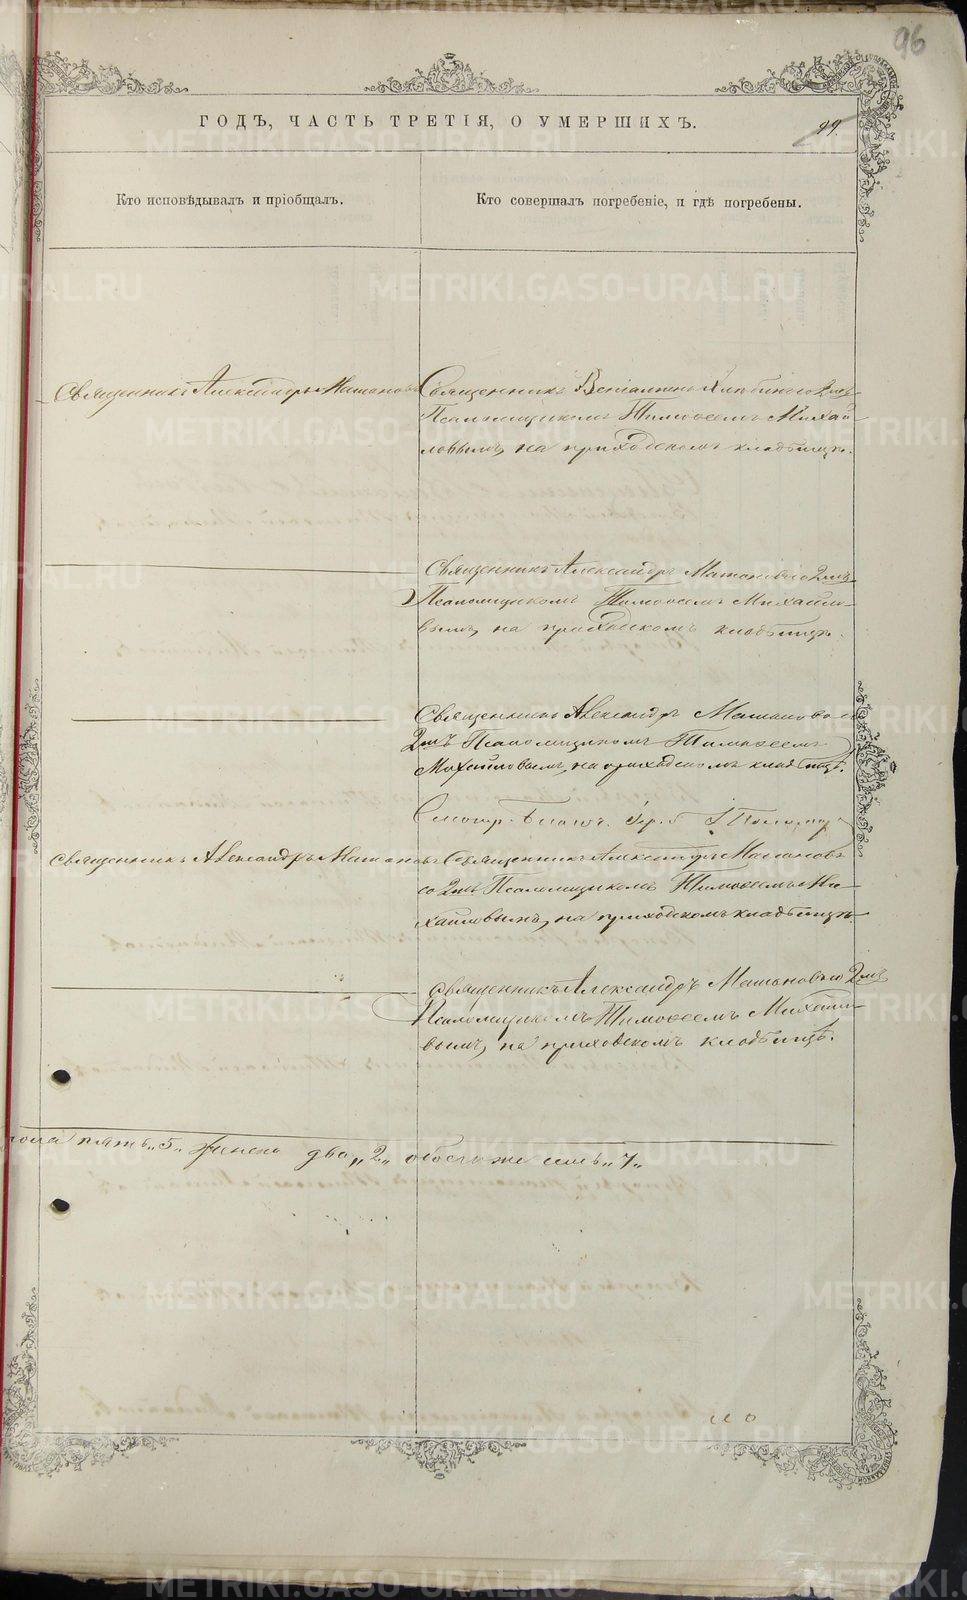 96
ГОДЪ, ЧАСТЬ ТРЕТІЯ, О УМЕРШИХЪ.
99.
Кто исповѣдывалъ и пріобщалъ.
Кто совершалъ погребеніе, и гдѣ погребены.
Священникъ Александръ Машановъ
Священникъ Веніаминъ со 2мъ
Псаломщикомъ Тимоѳеемъ Михай-
ловымъ, на приходскомъ кладбищѣ.
Священникъ Александръ Машановъ со 2мъ
Псаломщикомъ Тимоѳеемъ Михайло-
вымъ, на приходскомъ кладбищѣ.
Священникъ Александръ Машановъ со
2мъ Псаломщикомъ Тимоѳеемъ
Михайловымъ, на приходскомъ кладбищѣ.
Священникъ Александръ Машановъ
Священникъ Александръ Машановъ
со 2мъ Псаломщикомъ Тимоѳеемъ Ми-
хайловымъ, на приходскомъ кладбищѣ.
Священникъ Александръ Машановъ со 2мъ
Псаломщикомъ Тимоѳеемъ Михайло-
вымъ, на приховскомъ кладбищѣ.
пола пять „5„ женска два „2„ обоего же семь „7„
METRIKI.GASO-URAL.RU